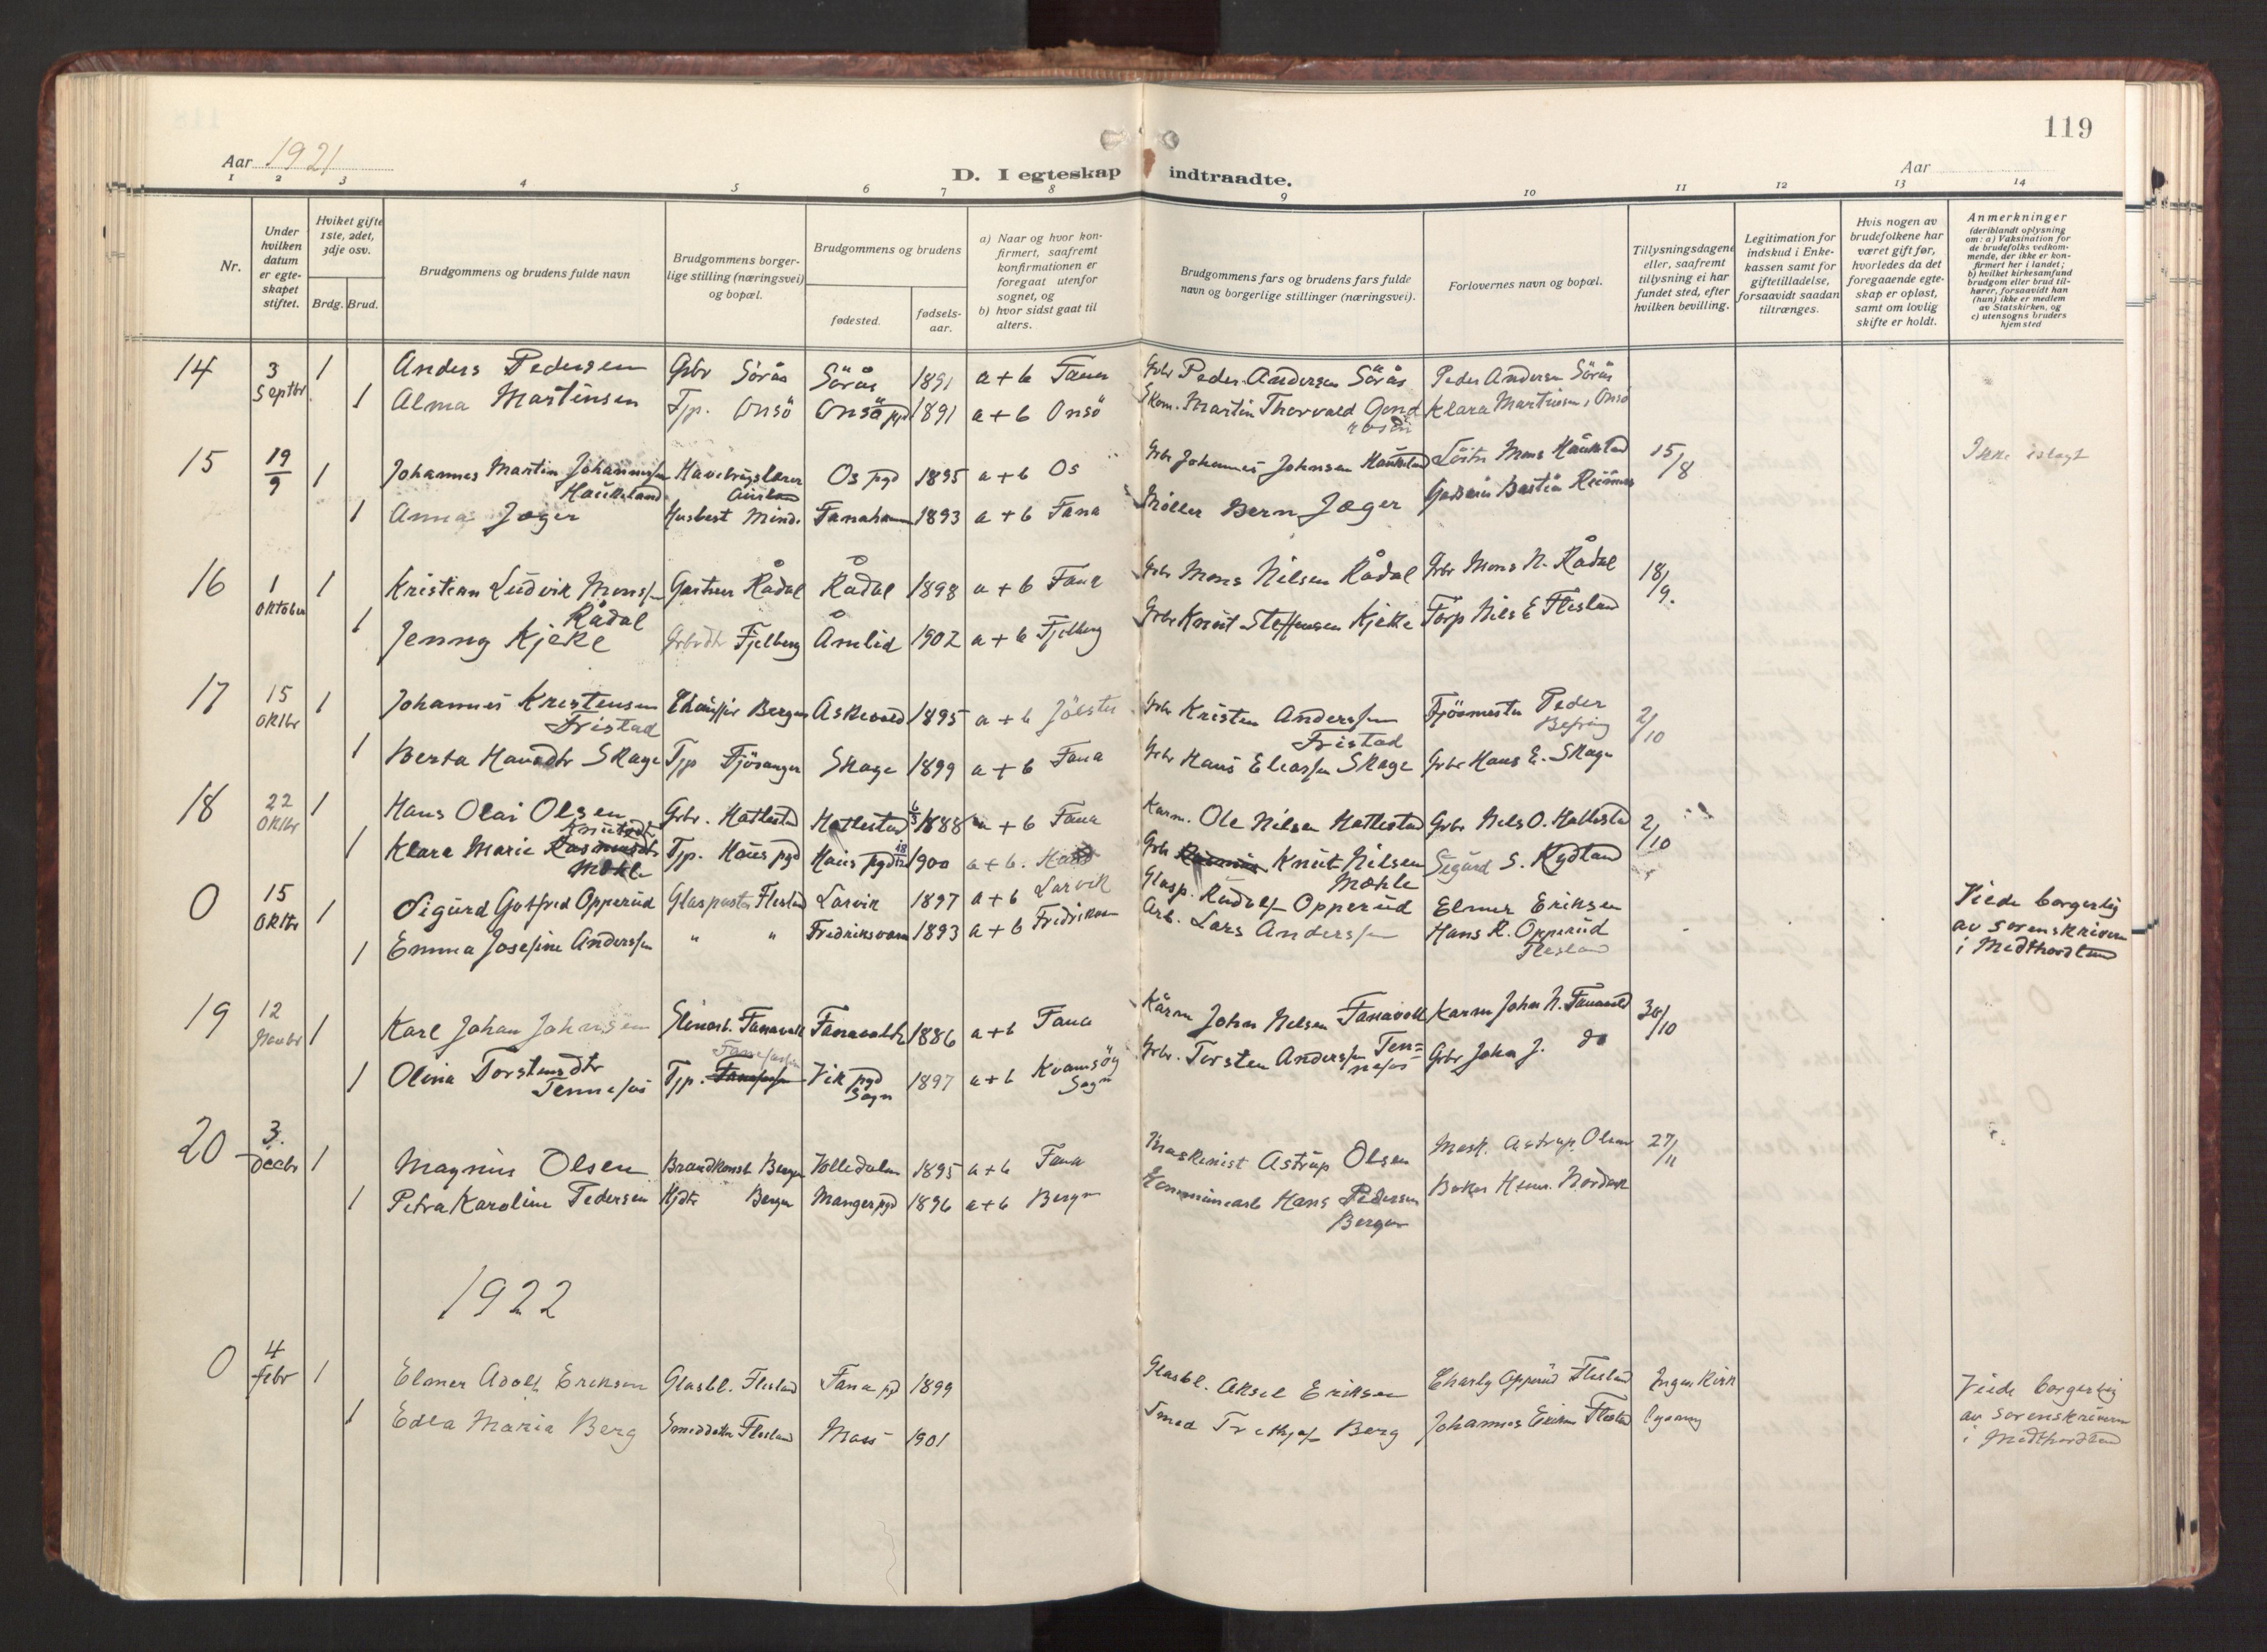 119
Aar 1921
D. I egteskap indtraadte.
Aar
1 2 3 4 5 6 7 8 9 10 11 12 13 14
Nr.
Under hvilken datum er egteskapet stiftet.
Hviket gifte 1ste, 2det, 3dje osv.
Brdg. Brud.
Brudgommens og brudens fulde navn
Brudgommens borgerlige stilling (næringsvei) og bopæl.
Brudgommens og brudens
fødested.
fødselsaar.
a) Naar og hvor konfirmert, saafremt konfirmationen er foregaat utenfor sognet, og
b) hvor sidst gaat til alters.
Brudgommens fars og brudens fars fulde navn og borgerlige stillinger (næringsvei).
Forlovernes navn og bopæl.
Tillysningsdagene eller, saafremt tillysning ei har fundet sted, efter hvilken bevilling.
Legitimation for indskud i Enkekassen samt for giftetilladelse, forsaavidt saadan tiltrænges.
Hvis nogen av brudefolkene har været gift før, hvorledes da det foregaaende egteskap er opløst, samt om lovlig skifte er holdt.
Anmerkninger (deriblandt oplysning om: a) Vaksination for de brudefolks vedkommende, der ikke er konfirmert her i landet; b) hvilket kirkesamfund brudgom eller brud tilhører, forsaavidt han (hun) ikke er medlem av Statskirken, og c) utensogns bruders hjemsted
14 3 Septbr 1 Anders Pedersen Gbr Sörås Sörås 1891 a+b Fana Gbr Peder Andersen Sörås Peder Andersen Sörås
1 Alma Martinsen Tjp. Onsö Onsö pgd 1891 a+b Onsö Martin Thorvald Klara Martinsen, Onsö
15 19/9 1 Johannes Martin Johannessen Haukeland Os pgd 1895 a+b Os Gbr Johannes Johnsen Mons 15/8 Ikke
1 Anna Jæger Minde Fanahamn 1893 a+b Fana Møller Bern Jæger Bastin
16 1 Oktober 1 Kristian Ludvik Monssen Rådal Gartner Rådal Rådal 1898 a+b Fana Gbr Mons Nilsen Rådal Gbr Mons N. Rådal 18/9.
1 Jenny Kjeke Gbrdtr Fjelberg Åmlid 1902 a+b Fjelberg Gbr Knut Steffensen Kjekke Nils E Flesland
17 15 Oktbr 1 Johannes Kristensen Fristad Chauffør Bergen Askevold 1895 a+b Jölster Gbr Kristen Anderssen Fristad Fjösmester Peder Befring 2/10
1 Berta Hansdtr Skage Tjp Fjösanger Skage 1899 a+b Fana Gbr Hans Eliassen Skage Gbr Hans E. Skage
18 22 Oktbr 1 Hans Olai Olsen Gbr. Hatlestad Hatlestad 1888 a+b Fana Karm. Ole Nilsen Hatlestad Gbr Nils O. Hatlestad 2/10
1 Klara Marie Rasmusdtr Knutsdtr Møkle Tjp. Haus pgd Haus pgd 1900 a+b. Haus Gbr Knut Nilsen Møhle Sigurd S.
0 15 Oktbr 1 Sigurd Gotfred Opperud Glaspuster Flesland Larvik 1897 a+b Larvik Glasp. Rudolf Opperud Elmer Eriksen Viede borgerlig
1 Emma Josefine Anderssen " " Fredriksvern 1893 a+b Arb. Lars Anderssen Hans R. Opperud Flesland av sorenskriveren i Midthordland
19 12 Novbr 1 Karl Johan Johnsen Fanavold Fanavold 1886 a+b Fana Karm John Nilsen Fanavold Karm John N. Fanavold 30/10
1 Olina Torstensdtr Tennefos Tjp. Vik pgd Sogn 1897 a+b Kvamsöy Sogn Gbr. Torsten Anderssen Tennefos Gbr John J. do
20 3. Decbr 1 Magnus Olsen Brandkonst. Bergen 1895 a+b Fana Maskinist Astrup Olsen Mask. Astrup Olsen 27/11
1 Petra Karoline Pedersen Hjdtr Bergen Manger pgd 1896 a+b Bergen Hans Pedersen Bergen Baker
1922
0 4 Febr 1 Elmer Adolf Eriksen Glasbl. Flesland Fana pgd 1899 Glasbl. Aksel Eriksen Charly Opperud Flesland Ingen kirk Viede borgerlig
1 Edla Maria Berg Smeddatter Flesland Moss 1901 Smed Berg Johannes Eriksen Flesland lysning av sorenskriveren i Midthordland